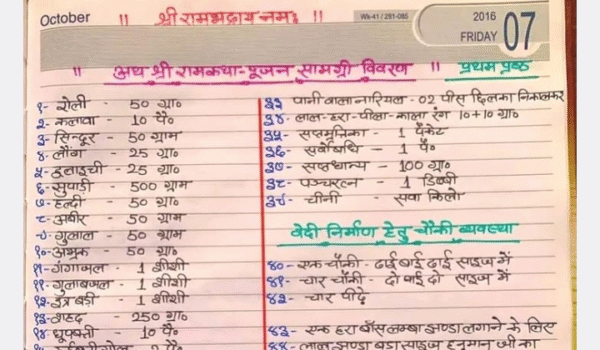 October
Wk-41 / 281-085
2016
FRIDAY 07
|| श्री रामभद्राय नमः ||
|| अथ श्री रामकथा-पूजन सामग्री विवरण || प्रथम पृष्ठ
१- रोली - 50 ग्रा०
२- कलावा - 10 पै०
३- सिन्दूर - 50 ग्राम
४- लौंग - 25 ग्रा०
५- इलाइची - 25 ग्रा०
६- सुपाड़ी - 500 ग्राम
७- हल्दी - 50 ग्रा०
८- अबीर - 50 ग्राम
९- गुलाल - 50 ग्राम
१०- अभ्रक - 50 ग्रा०
११- गंगाजल - 1 शीशी
११- गुलाबजल - 1 शीशी
१२- इत्र बडी - 1 शीशी
१३- शहद - 250 ग्रा०
१४- धूपबत्ती - 10 पै०
३३ पानी वाला नारियल - 02 पीस छिलका निकालकर
३४- लाल-हरा-पीला-काला रंग 10+10 ग्रा०
३५- सप्तमृत्तिका - 1 पैकेट
३६- सर्वोषधि - 1 पै०
३७- सप्तधान्य - 100 ग्रा०
३८- पञ्चरत्न - 1 डिब्बी
३९- चीनी - सवा किलो
वेदी निर्माण हेतु चौकी व्यवस्था
४०- एक चौकी - ढाई बाई ढाई साइज में
४१- चार चौकी - दो बाई दो साइज में
४२- चार पीढ़े
४३- एक हरा बाँस लम्बा झण्डा लगाने के लिए
४४- लाल झण्डा बडा साइज हनुमान जी का